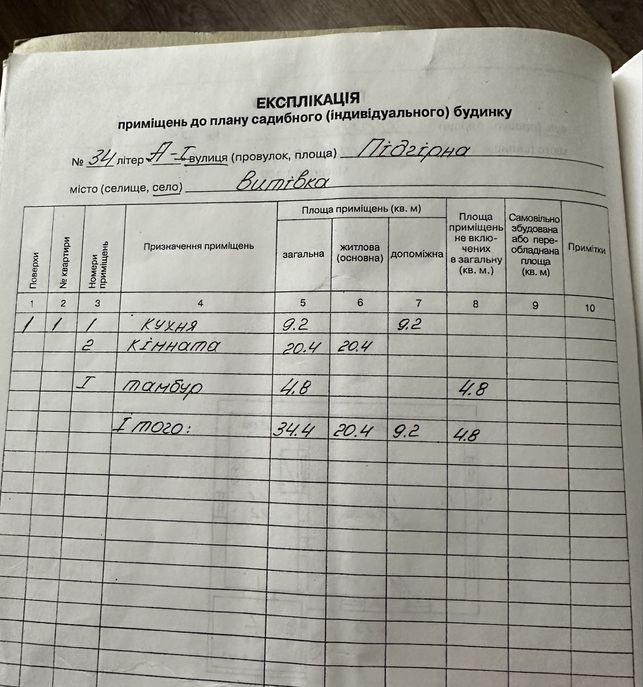 ЕКСПЛІКАЦІЯ
приміщень до плану садибного (індивідуального) будинку
№ 34 літер А-І вулиця (провулок, площа) Підгірна
місто (селище, село) Витівка
Поверхи № квартири Номери приміщень Призначення приміщень Площа приміщень (кв. м) загальна житлова (основна) допоміжна Площа приміщень не вклю- чених в загальну (кв. м.) Самовільно збудована або пере- обладнана площа (кв. м) Примітки
1 2 3 4 5 6 7 8 9 10
1 1 1 кухня 9.2 9.2
2 кімната 20.4 20.4
І тамбур 4.8 4.8
Ітого: 34.4 20.4 9.2 4.8